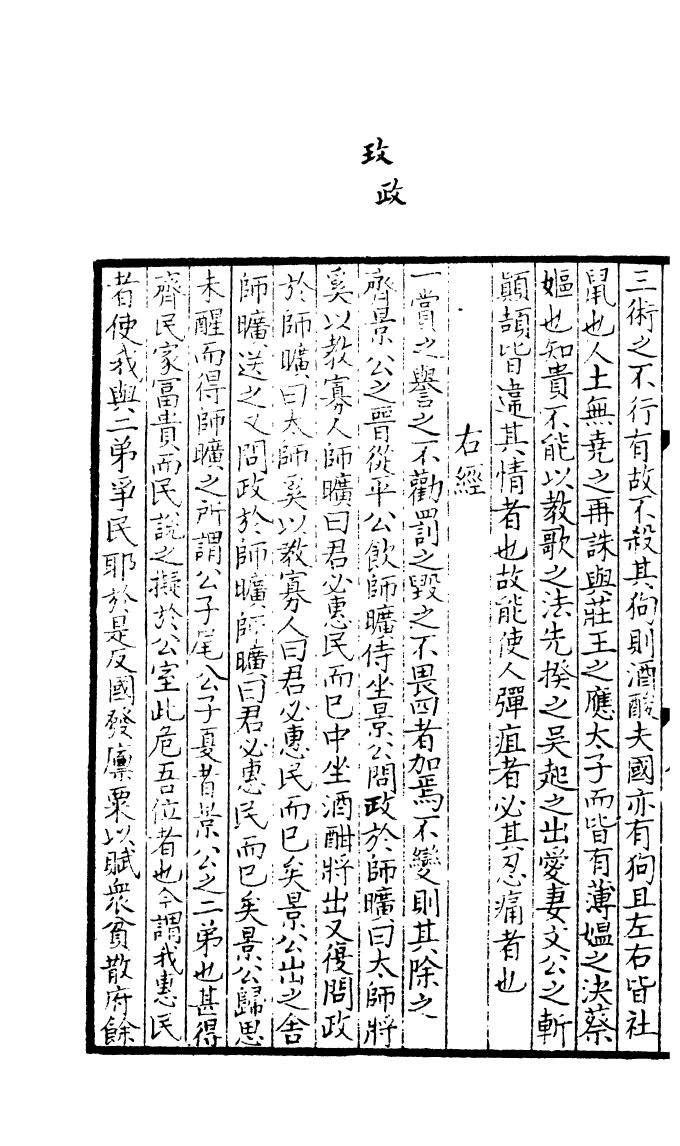 玫
政
三術之不行有故不殺其狗則酒酸夫國亦有狗且左右皆社
鼠也人土無堯之再誅與莊王之應太子而皆有薄媼之決蔡
嫗也知貴不能以教歌之法先揆之吳起之出愛妻文公之斬
顛頡皆違其情者也故能使人彈疽者必其忍痛者也
右經
一賞之譽之不勸罰之毀之不畏四者加焉不變則其除之
齊景公之晉從平公飲師曠侍坐景公問政於師曠曰太師將
奚以教寡人師曠曰君必惠民而已中坐酒酣將出又復問政
於師曠曰太師奚以教寡人曰君必惠民而已矣景公出之舍
師曠送之又問政於師曠師曠曰君必惠民而已矣景公歸思
未醒而得師曠之所謂公子尾公子夏者景公之二弟也甚得
齊民家富貴而民說之擬於公室此危吾位者也今謂我惠民
者使我與二弟爭民耶於是反國發廪粟以賦衆貧散府餘